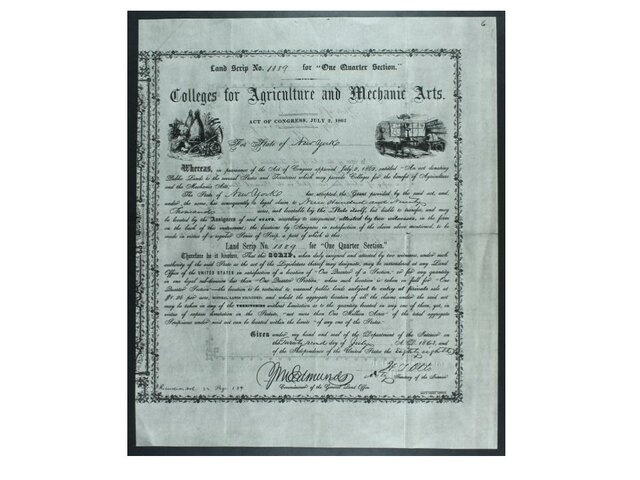 6
Land Scrip No. 1889 for "One Quarter Section."
Colleges for Agriculture and Mechanic Arts.
ACT OF CONGRESS, JULY 2, 1862
For State of New York
Whereas, in pursuance of the Act of Congress approved July 2, 1862, entitled "An act donating
Public Lands to the several States and Territories which may provide Colleges for the benefit of Agriculture
and the Mechanic Arts,"
The State of New York has accepted the Grant provided by the said act, and,
under the same, has consequently a legal claim to Nine Hundred and Ninety
Thousand acres, not locatable by the State itself, but liable to transfer, and may
be located by the Assignees of said STATE, according to assignment attested by two witnesses, in the form
on the back of this instrument; the locations by Assignees in satisfaction of the claim above mentioned, to be
made in virtue of a regular Series of Scrip, a part of which is this.
Land Scrip No. 1889 for "One Quarter Section."
Therefore be it known, That this SCRIP, when duly assigned and attested by two witnesses, under such
authority of the said State as the act of the Legislature thereof may designate, may be surrendered at any Land
Office of the UNITED STATES in satisfaction of a location of "One Quarter of a Section," or for any quantity
in one legal sub-division less than "One Quarter Section," where such location is taken in full for "One
Quarter Section"—the location to be restricted to vacant public lands subject to entry at private sale at
$1.25 per acre, MINERAL LANDS EXCLUDED; and whilst the aggregate location of all the claims under the said act
may be taken in any of the TERRITORIES without limitation as to the quantity located in any one of them, yet, in
virtue of express limitation in the Statute, "not more than One Million Acres" of the total aggregate
assignments under said act can be located within the limits "of any one of the States."
Given under my hand and seal of the Department of the Interior on
the Twenty second day of July A. D. 1863, and
of the Independence of the United States the eighty eighth
J M Edmunds
Commissioner of the General Land Office.
W. T. Otto
Secretary of the Interior